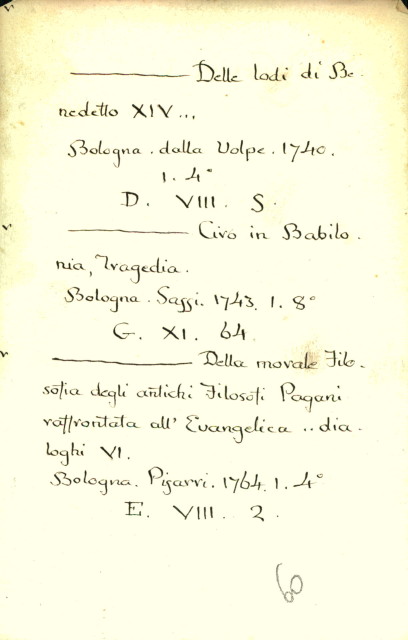 ——— Delle lodi di Be.
nedetto XIV...
Bologna. dalla Volpe. 1740.
1. 4°
D. VIII. S.
——— Ciro in Babilo.
nia, Tragedia.
Bologna. Sassi. 1743. 1. 8°
G. XI. 64
——— Della morale Filo.
sofia degli antichi Filosofi Pagani
raffrontata all' Evangelica .. dia.
loghi VI.
Bologna. Pisarri. 1764. 1. 4°
E. VIII. 2.
60